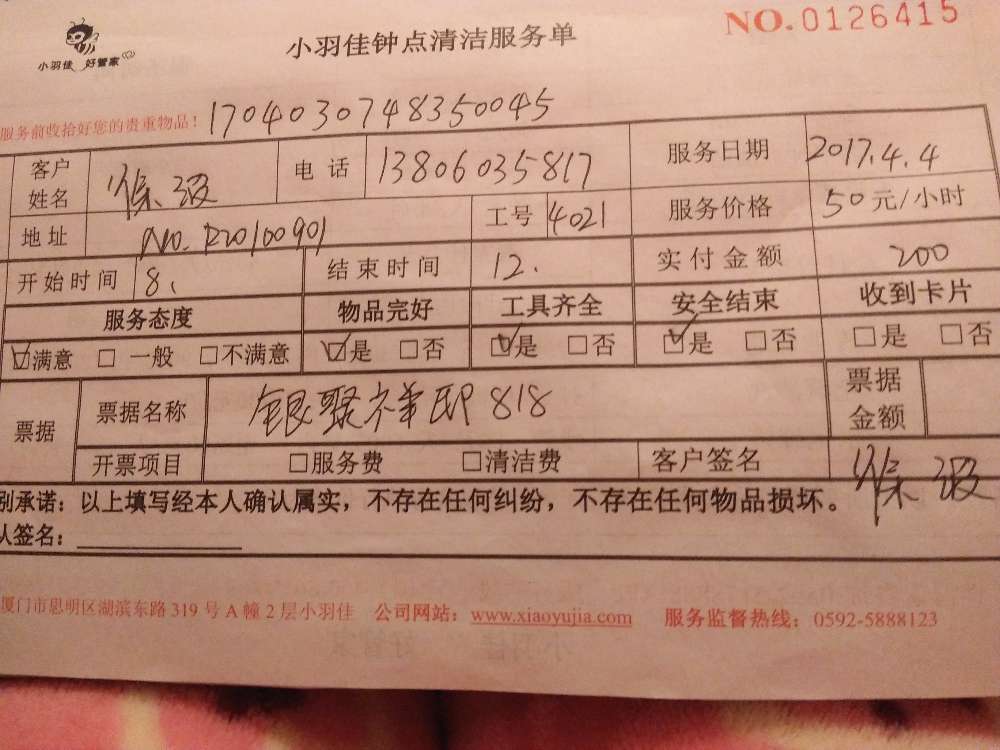 小羽佳 好管家
小羽佳钟点清洁服务单
NO.0126415
服务前收拾好您的贵重物品! 1704030748350045
客户姓名 电话 13806035817 服务日期 2017.4.4
地址 No. 工号 4021 服务价格 50元/小时
开始时间 8. 结束时间 12. 实付金额 200
服务态度 物品完好 工具齐全 安全结束 收到卡片
☑满意 □一般 □不满意 ☑是 □否 ☑是 □否 ☑是 □否 □是 □否
票据 票据名称 银聚祥邸818 票据金额
开票项目 □服务费 □清洁费 客户签名
别承诺：以上填写经本人确认属实，不存在任何纠纷，不存在任何物品损坏。
人签名：
厦门市思明区湖滨东路319号A幢2层小羽佳 公司网站：www.xiaoyujia.com 服务监督热线：0592-5888123